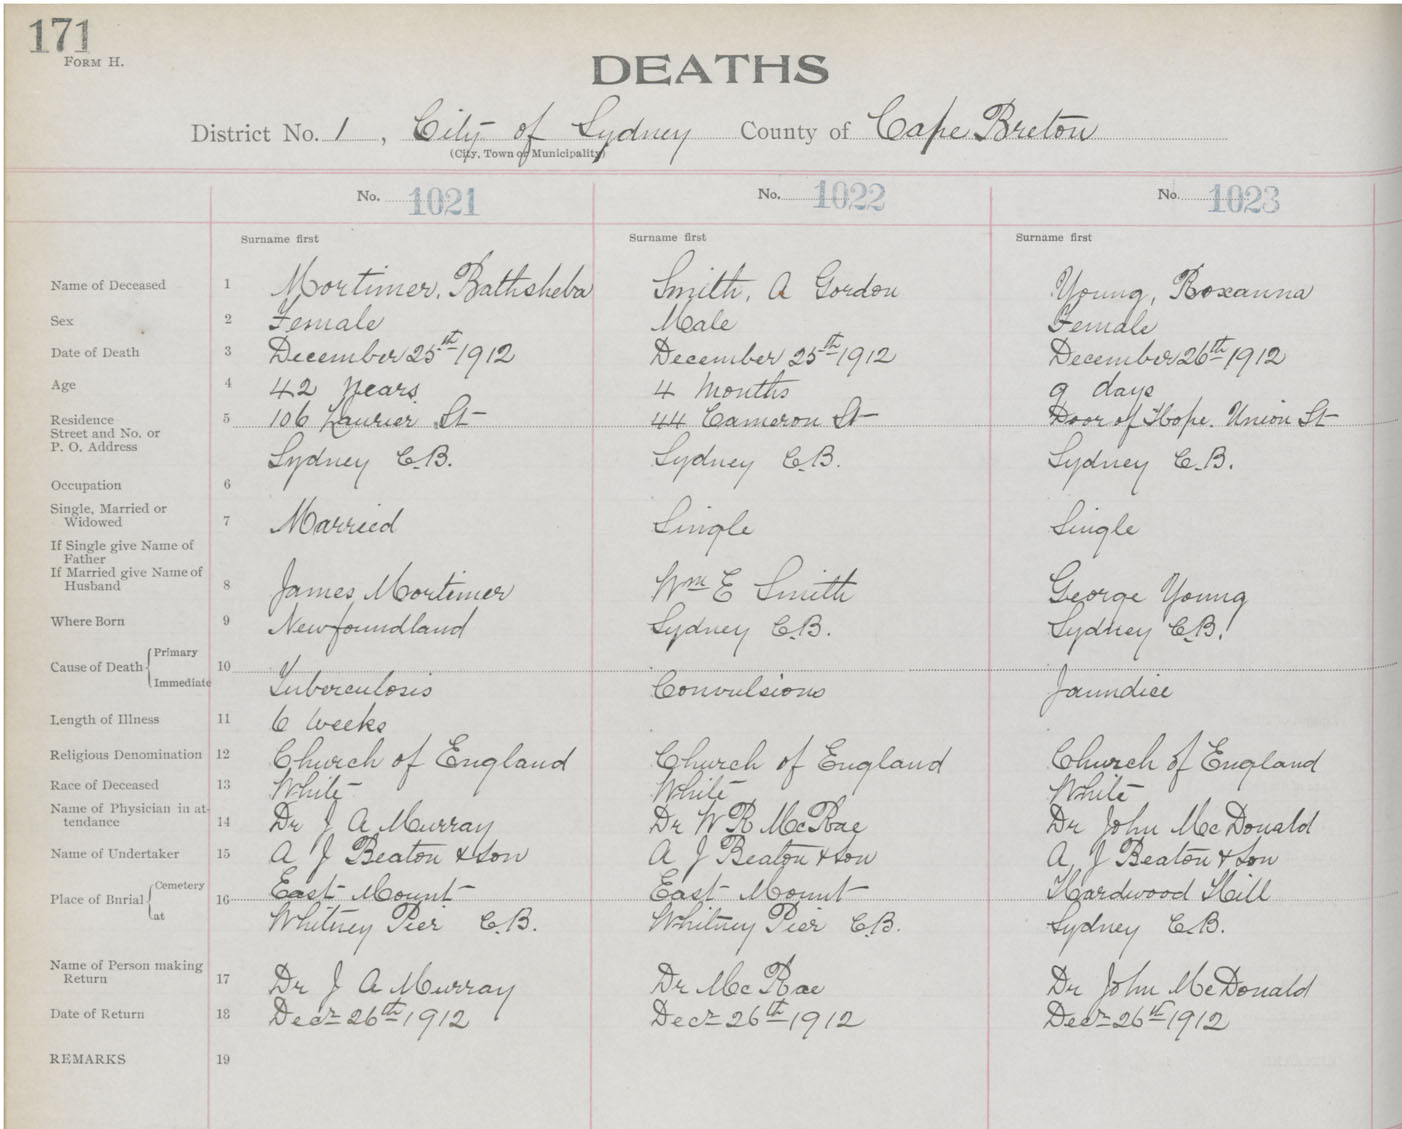 171
FORM H.
DEATHS
District No. 1, City of Sydney County of Cape Breton
(City, Town or Municipality)
No. 1021 No. 1022 No. 1023
Surname first Surname first Surname first
Name of Deceased 1 Mortimer, Bathsheba Smith, A Gordon Young, Roxanna
Sex 2 Female Male Female
Date of Death 3 December 25th 1912 December 25th 1912 December 26th 1912
Age 4 42 years 4 months 9 days
Residence 5 106 Laurier St 44 Cameron St Door of Hope. Union St
Street and No. or
P. O. Address
Sydney C.B. Sydney C.B. Sydney C.B.
Occupation 6
Single, Married or
Widowed 7 Married Single Single
If Single give Name of
Father
If Married give Name of
Husband 8 James Mortimer Wm E Smith George Young
Where Born 9 Newfoundland Sydney C.B. Sydney C.B.
Cause of Death Primary 10
Immediate Tuberculosis Convulsions Jaundice
Length of Illness 11 6 weeks
Religious Denomination 12 Church of England Church of England Church of England
Race of Deceased 13 White White White
Name of Physician in at-
tendance 14 Dr J A Murray Dr W R McRae Dr John McDonald
Name of Undertaker 15 A J Beaton & Son A J Beaton & Son A J Beaton & Son
Place of Burial Cemetery 16 East Mount East Mount Hardwood Hill
at Whitney Pier C.B. Whitney Pier C.B. Sydney C.B.
Name of Person making
Return 17 Dr J A Murray Dr McRae Dr John McDonald
Date of Return 18 Decr 26th 1912 Decr 26th 1912 Decr 26th 1912
REMARKS 19